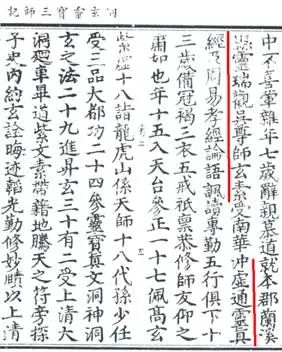 洞玄靈寶三師記
中不喜葷雜年七歲辭親慕道就本郡蘭溪
縣靈瑞觀吳尊師玄素受南華沖虛通靈真
經及周易孝經論語諷讀專勤五行俱下十
三歲備冠褐三衣五戒祇稟恭修師友仰之
肅如也年十五入天台參正一十七佩高玄
紫虛十八詣龍虎山係天師十八代孫少任
受三品大都功二十四參靈寶真文洞神洞
玄之法二十九進昇玄三十有二受上清大
洞迴車畢道紫文素帶藉地騰天之符旁探
子史內約玄詮晦迹韜光勤修妙賾以上清